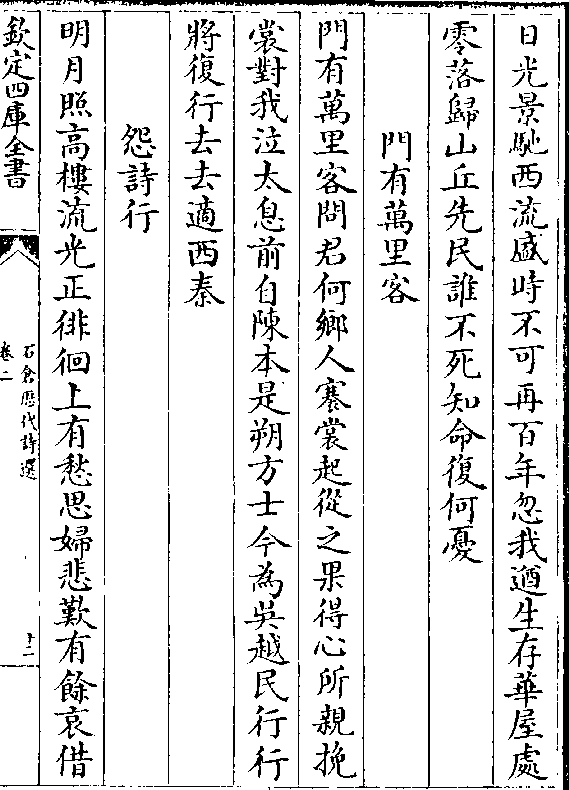 日光景馳西流盛時不可再百年忽我遒生存華屋處
零落歸山丘先民誰不死知命復何憂
門有萬里客
門有萬里客問君何鄉人褰裳起從之果得心所親挽
裳對我泣太息前自陳本是朔方士今為吳越民行行
將復行去去適西秦
怨詩行
明月照高樓流光正徘徊上有愁思婦悲歎有餘哀借
欽定四庫全書
石倉歷代詩選
卷二
十二